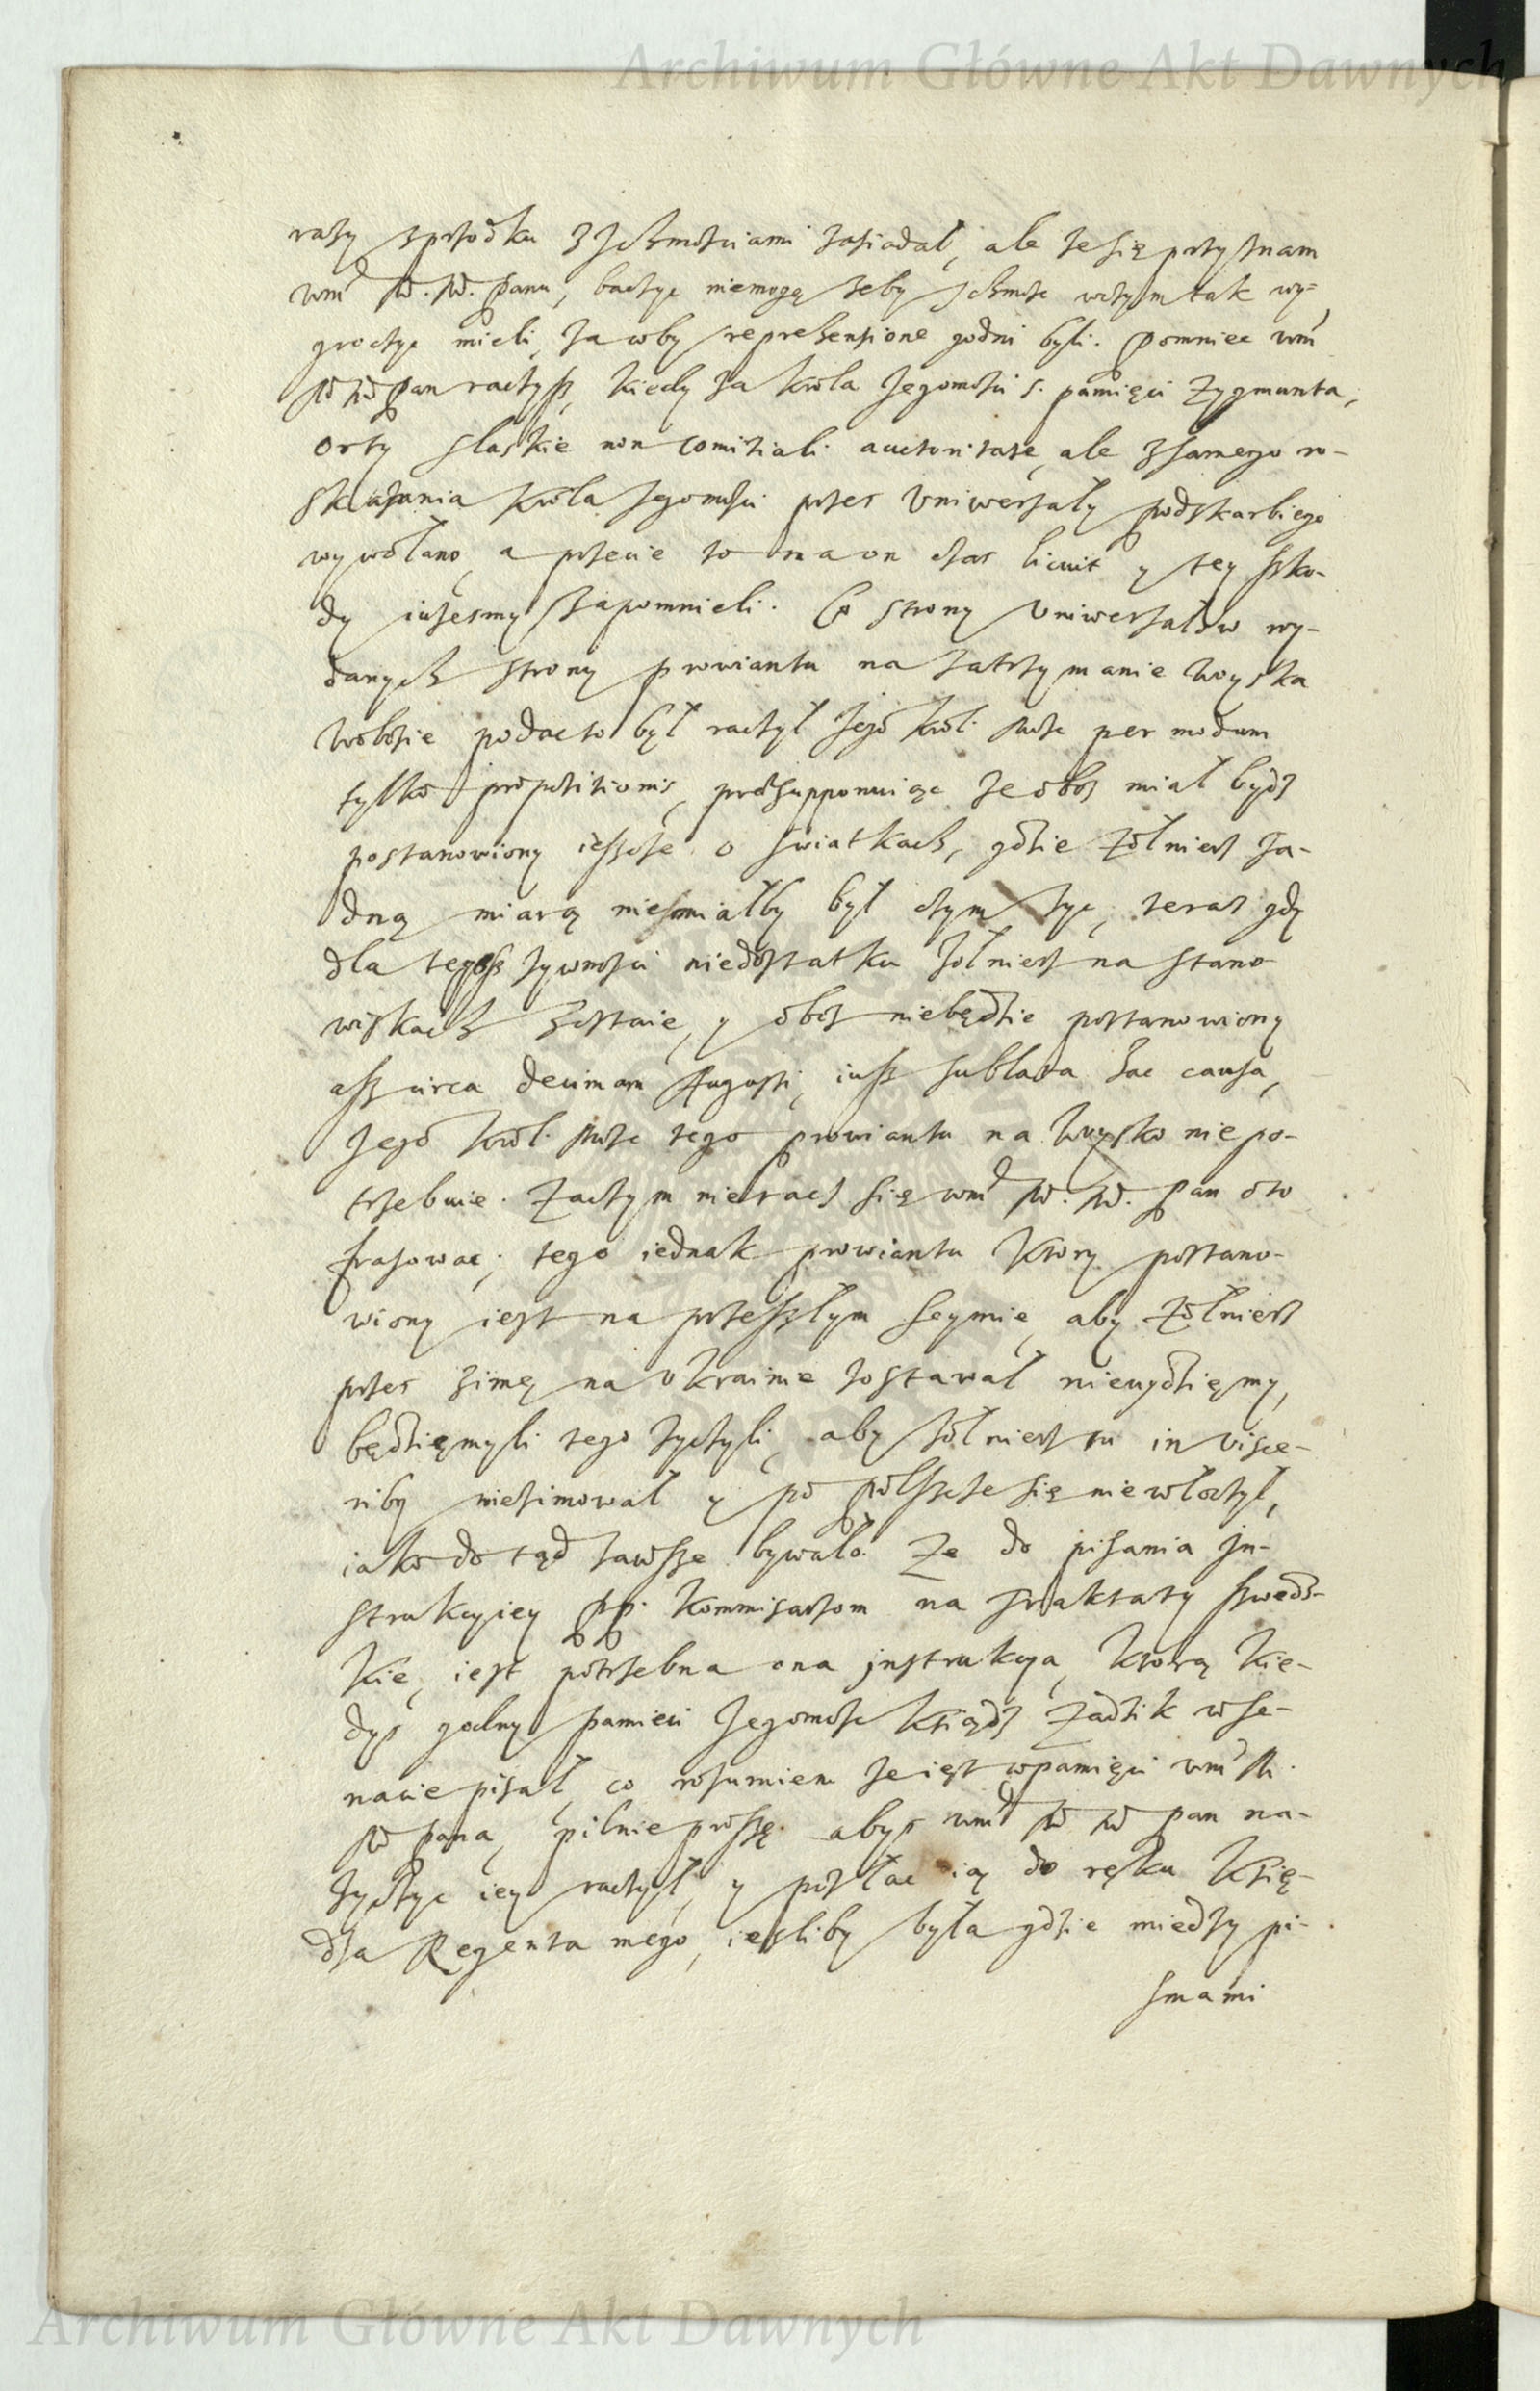 Archiwum Główne Akt Dawnych
razy zprzodku z Ichmościami zasiadał, ale że się przyznam
wm M. M. Panu, baczyc niemogę żeby Ichmość wczym tak wy=
kroczyc mieli, żawby reprehensione godni byli. Pomniec wm
M M Pan raczysz, kiedy za Krola Jegomości s. pamięci Zygmunta,
orty slaskie non comitiali auctoritate, ale z samego ro-
skazania Krola Jegomości przez Vniwersały podskarbiego
wywołano, a przecie to na on czas licuit y tey szko-
dy iużesmy zapomnieli. Co strony Vniwersałow wy-
danych strony prowiantu na zatrzymanie woyska
wobozie podac to był raczył Jego Krol. Mość per modum
tylko propositionis, praesupponuiąc że oboz miał bydz
postanowiony ieszcze o swiatkach, gdzie Zołnierz ża-
dną miarą niemiałby był czym życ, teraz gdy
dla tegosz żywności niedostatku żołnierz na stano
wiskach zostaie, y oboz niebędzie postanowiony
asz circa decimam Augusti, iusz sublata hac causa,
Jego Krol. Mość tego prowiantu na woysko nie po-
trzebuie. Zaczym nieracz się wm M. M. Pan oto
frasowac, tego iednak prowiantu ktory postano-
wiony iest na przeszłym Seymie, aby Zołnierz
przez zimę na Vkrainie zostawał nieuydzięmy,
będzięmyli tego życzyli, aby żołnierz tu in visce-
ribus niezimował y po Polszcze się nie włoczył,
iako do tąd zawsze bywało. Ze do pisania In-
strukcyiey pp. Kommisarzom na traktaty szwedz-
kie, iest potrzebna ona instrukcya, ktorą kie-
dys godny pamieci Jegomość Ksiądz Zadzik w Se-
nacie pisał, co rozumiem że iest wpamięci wm M.
M Pana, pilnie proszę abys wm M M Pan na-
życzyc iey raczył, y posłac ią do ręku Księ-
dza Regenta mego, iesliby była gdzie miedzy pi-
smami
Archiwum Główne Akt Dawnych